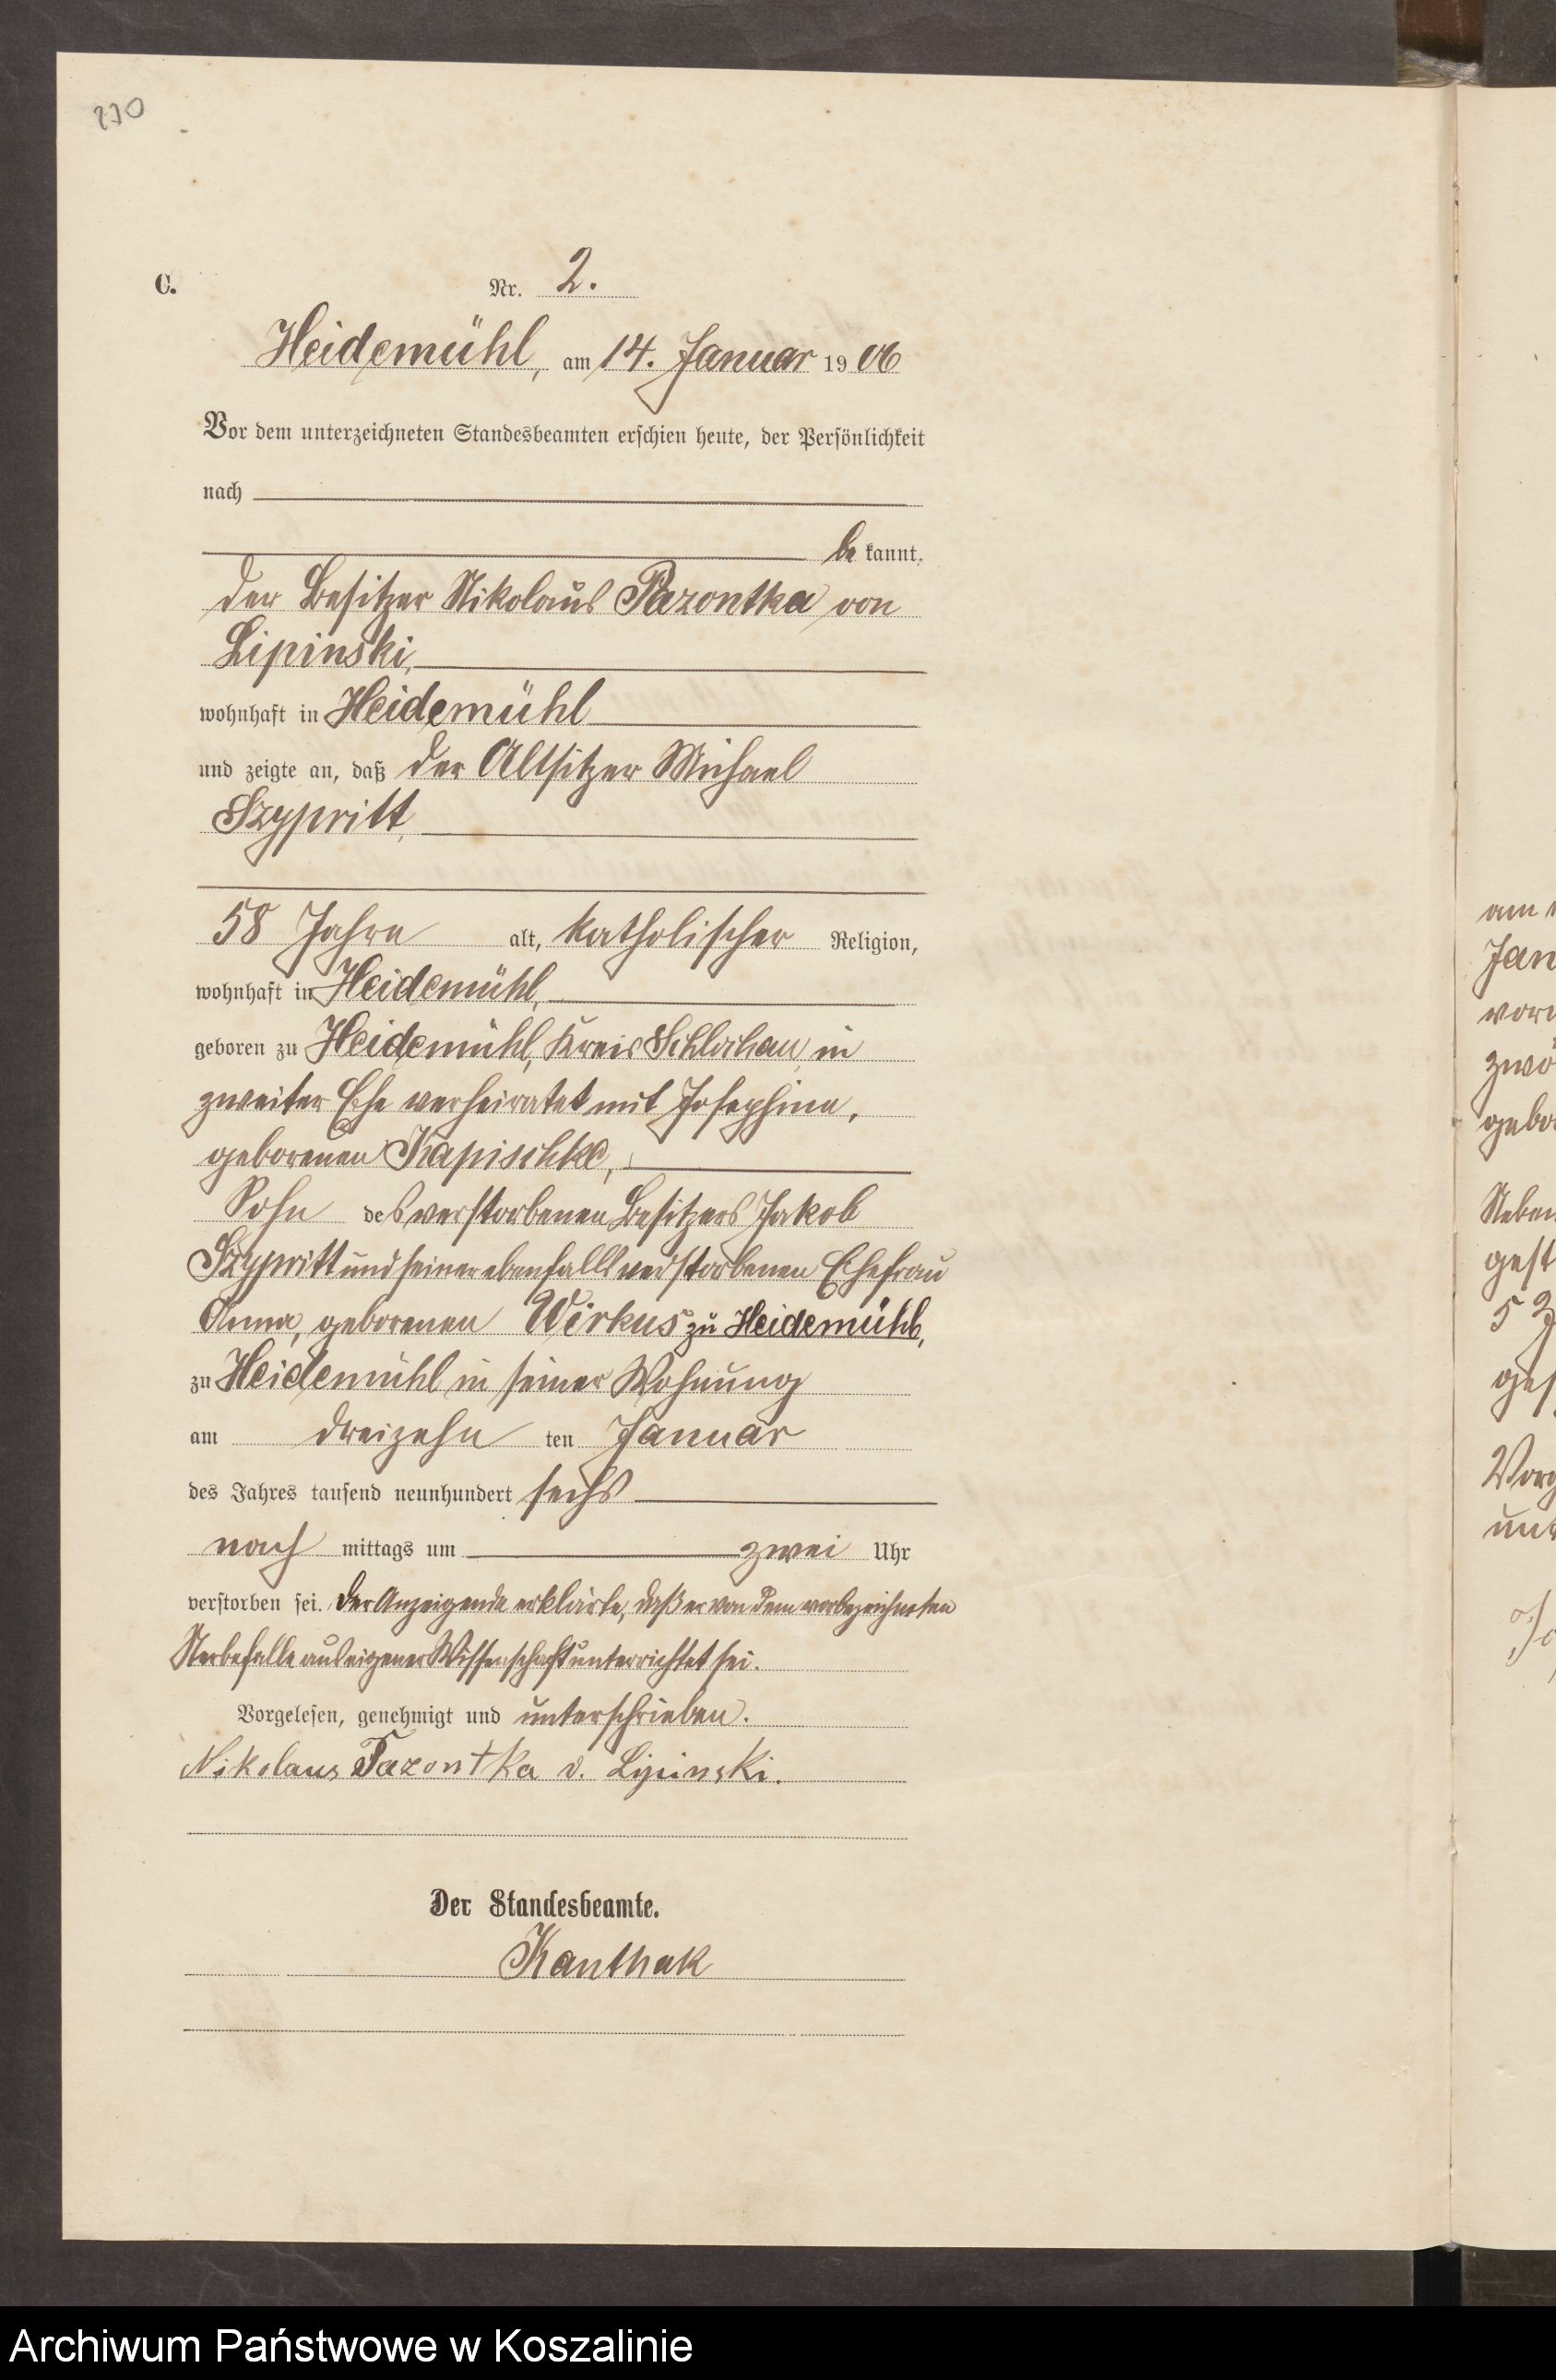 270
C.
Nr. 2.
Heidemühl, am 14. Januar 1906
Vor dem unterzeichneten Standesbeamten erschien heute, der Persönlichkeit
nach
be kannt,
der Besitzer Nikolaus Pazontka von
Lipinski,
wohnhaft in Heidemühl
und zeigte an, daß der Altsitzer Michael
Szypritt,
58 Jahre alt, katholischer Religion,
wohnhaft in Heidemühl,
geboren zu Heidemühl, Kreis Schlochau, in
zweiter Ehe verheiratet mit Josephine,
geborenen Kapischke,
Sohn des verstorbenen Besitzers Jakob
Szypritt und seiner ebenfalls verstorbenen Ehefrau
Anna, geborenen Wirkus zu Heidemühl,
zu Heidemühl in seiner Wohnung
am dreizehn ten Januar
des Jahres tausend neunhundert sechs
nach mittags um zwei Uhr
verstorben sei. Der Anzeigende erklärte, daß er von dem vorbezeichneten
Sterbefalle aus eigener Wissenschaft unterrichtet sei.
Vorgelesen, genehmigt und unterschrieben.
Nikolaus Pazontka v. Lipinski.
Der Standesbeamte.
Kanthak
am
Jan
Vorg
Archiwum Państwowe w Koszalinie